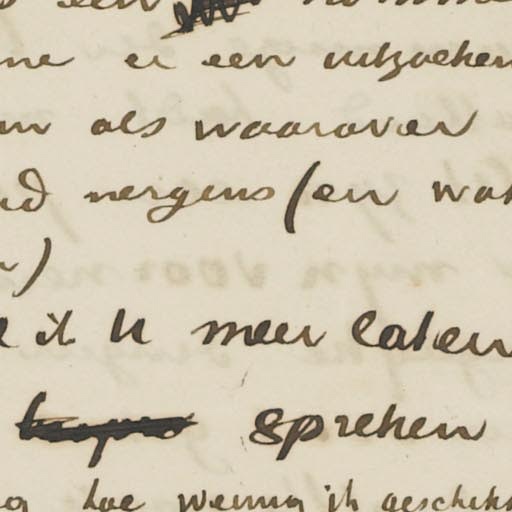 een
me er een uitzoeken
als waarover
nergens (en wat
)
ik U meer laten
spreken
hoe weinig ik geschikt